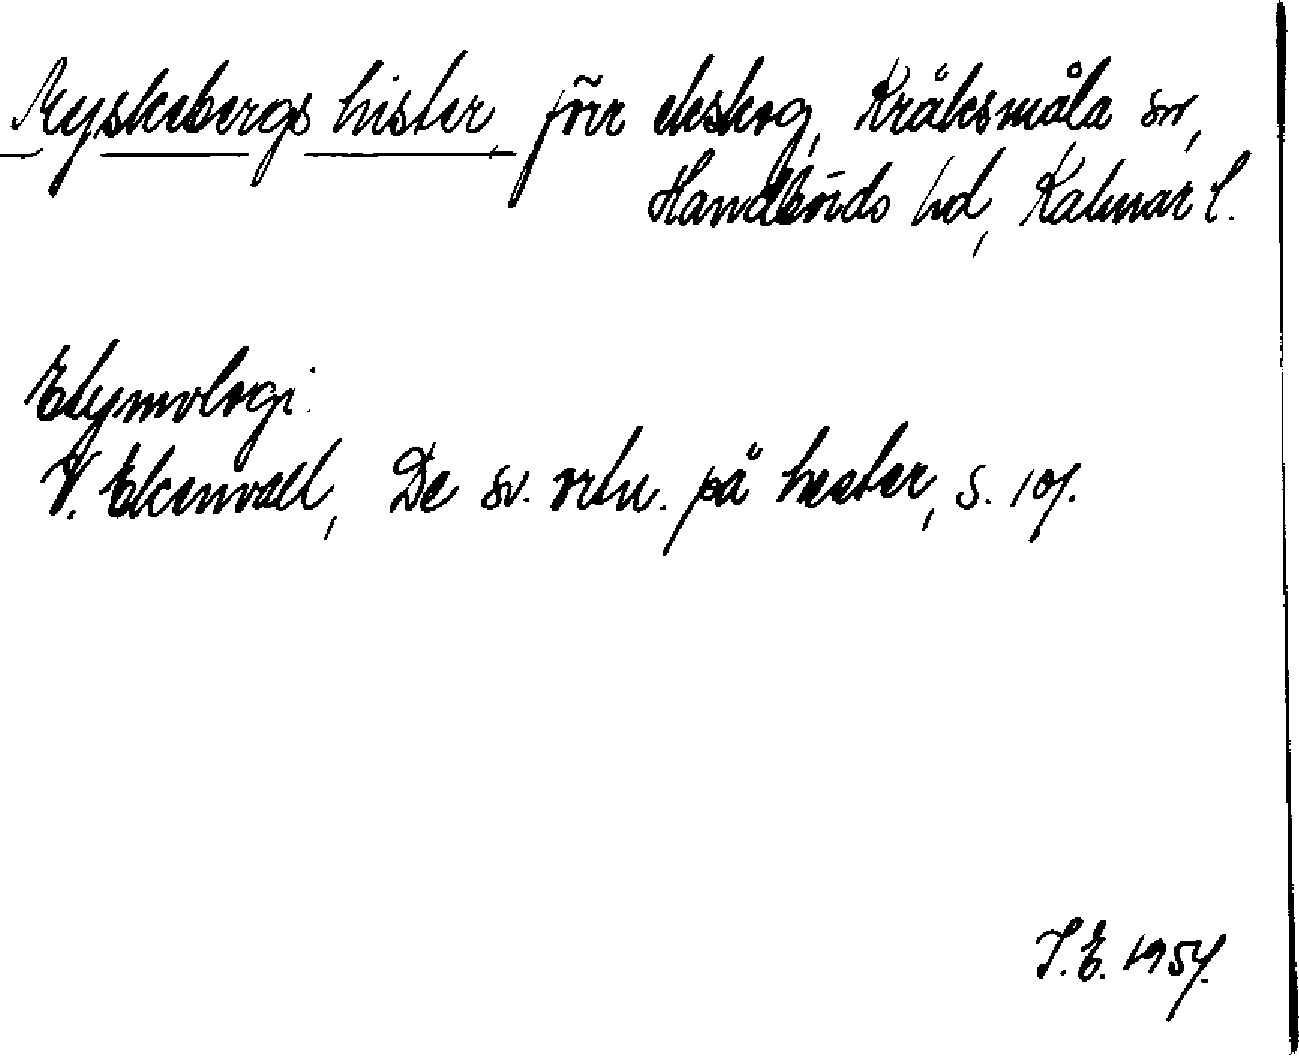 Myskebergs hister, förr ekskog, Kråksmåla sn,
Handbörds hd, Kalmar l.
Etymologi:
V. Ekenvall, De sv. ortn. på hester, s. 107.
I.E. 1957.